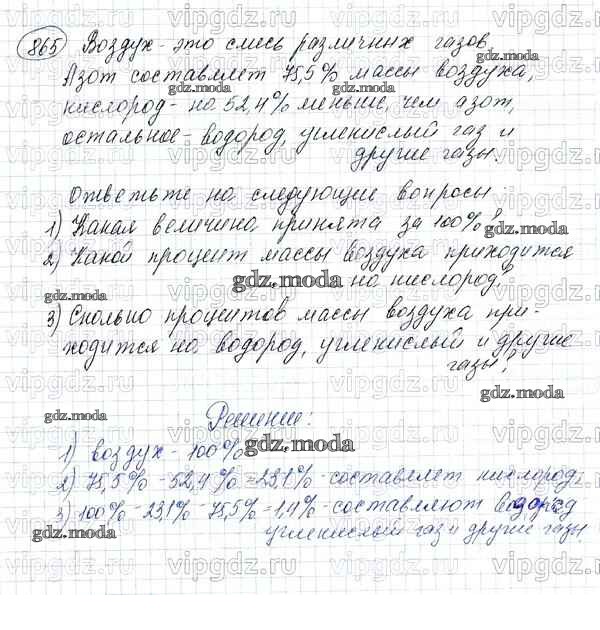 865 Воздух - это смесь различных газов.
Азот составляет 75,5% массы воздуха,
кислород - на 52,4% меньше, чем азот,
остальное - водород, углекислый газ и
другие газы.
Ответьте на следующие вопросы:
1) Какая величина принята за 100%?
gdz.moda
2) Какой процент массы воздуха приходится
gdz.moda
на кислород?
gdz.moda
3) Сколько процентов массы воздуха при-
ходится на водород, углекислый и другие
газы?
gdz.moda
gdz.moda
Решение:
1) воздух - 100%
gdz.moda
2) 75,5% - 52,4% = 23,1% - составляет кислород;
gdz.moda
3) 100% - 23,1% - 75,5% = 1,4% - составляют водород
gdz.moda
углекислый газ и другие газы.
gdz.moda
vipgdz.ru